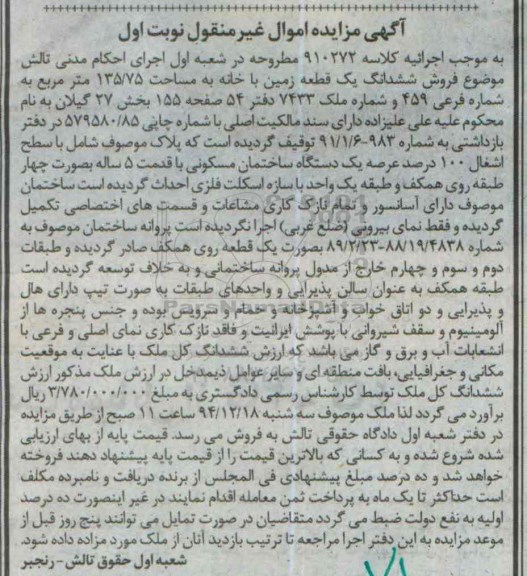 آگهی مزایده اموال غیر منقول نوبت اول
به موجب اجرائیه کلاسه ۹۱۰۲۷۲ مطروحه در شعبه اول اجرای احکام مدنی تالش
موضوع فروش ششدانگ یک قطعه زمین با خانه به مساحت ۱۳۵/۷۵ متر مربع به
شماره فرعی ۴۵۹ و شماره ملک ۷۴۳۳ دفتر ۵۴ صفحه ۱۵۵ بخش ۲۷ گیلان به نام
محکوم علیه علی علیزاده دارای سند مالکیت اصلی با شماره چاپی ۵۷۹۵۸۰/۸۵ در دفتر
بازداشتی به شماره ۹۸۳-۹۱/۱/۶ توقیف گردیده است که پلاک موصوف شامل با سطح
اشغال ۱۰۰ درصد عرصه یک دستگاه ساختمان مسکونی با قدمت ۵ ساله بصورت چهار
طبقه روی همکف و طبقه یک واحد با سازه اسکلت فلزی احداث گردیده است ساختمان
موصوف دارای آسانسور و تمام نازک کاری مشاعات و قسمت های اختصاصی تکمیل
گردیده و فقط نمای بیرونی (ضلع غربی) اجرا نگردیده است پروانه ساختمان موصوف به
شماره ۸۸/۱۹/۴۸۳۸-۸۹/۲/۲۳ بصورت یک قطعه روی همکف صادر گردیده و طبقات
دوم و سوم و چهارم خارج از مدول پروانه ساختمانی و به خلاف توسعه گردیده است
طبقه همکف به عنوان سالن پذیرایی و واحدهای طبقات به صورت تیپ دارای هال
و پذیرایی و دو اتاق خواب و آشپزخانه و حمام و سرویس بوده و جنس پنجره ها از
آلومینیوم و سقف شیروانی با پوشش ایرانیت و فاقد نازک کاری نمای اصلی و فرعی با
انشعابات آب و برق و گاز می باشد که ارزش ششدانگ کل ملک با عنایت به موقعیت
مکانی و جغرافیایی، بافت منطقه ای و سایر عوامل ذیمدخل در ارزش ملک مذکور ارزش
ششدانگ کل ملک توسط کارشناس رسمی دادگستری به مبلغ ۳/۷۸۰/۰۰۰/۰۰۰ ریال
برآورد می گردد لذا ملک موصوف سه شنبه ۹۴/۱۲/۱۸ ساعت ۱۱ صبح از طریق مزایده
در دفتر شعبه اول دادگاه حقوقی تالش به فروش می رسد. قیمت پایه از بهای ارزیابی
شده شروع شده و به کسانی که بالاترین قیمت را از قیمت پایه پیشنهاد دهند فروخته
خواهد شد و ده درصد مبلغ پیشنهادی فی المجلس از برنده دریافت و نامبرده مکلف
است حداکثر تا یک ماه به پرداخت ثمن معامله اقدام نمایند در غیر اینصورت ده درصد
اولیه به نفع دولت ضبط می گردد متقاضیان در صورت تمایل می توانند پنج روز قبل از
موعد مزایده به این دفتر اجرا مراجعه تا ترتیب بازدید آنان از ملک مورد مزاده داده شود.
شعبه اول حقوق تالش - رنجبر